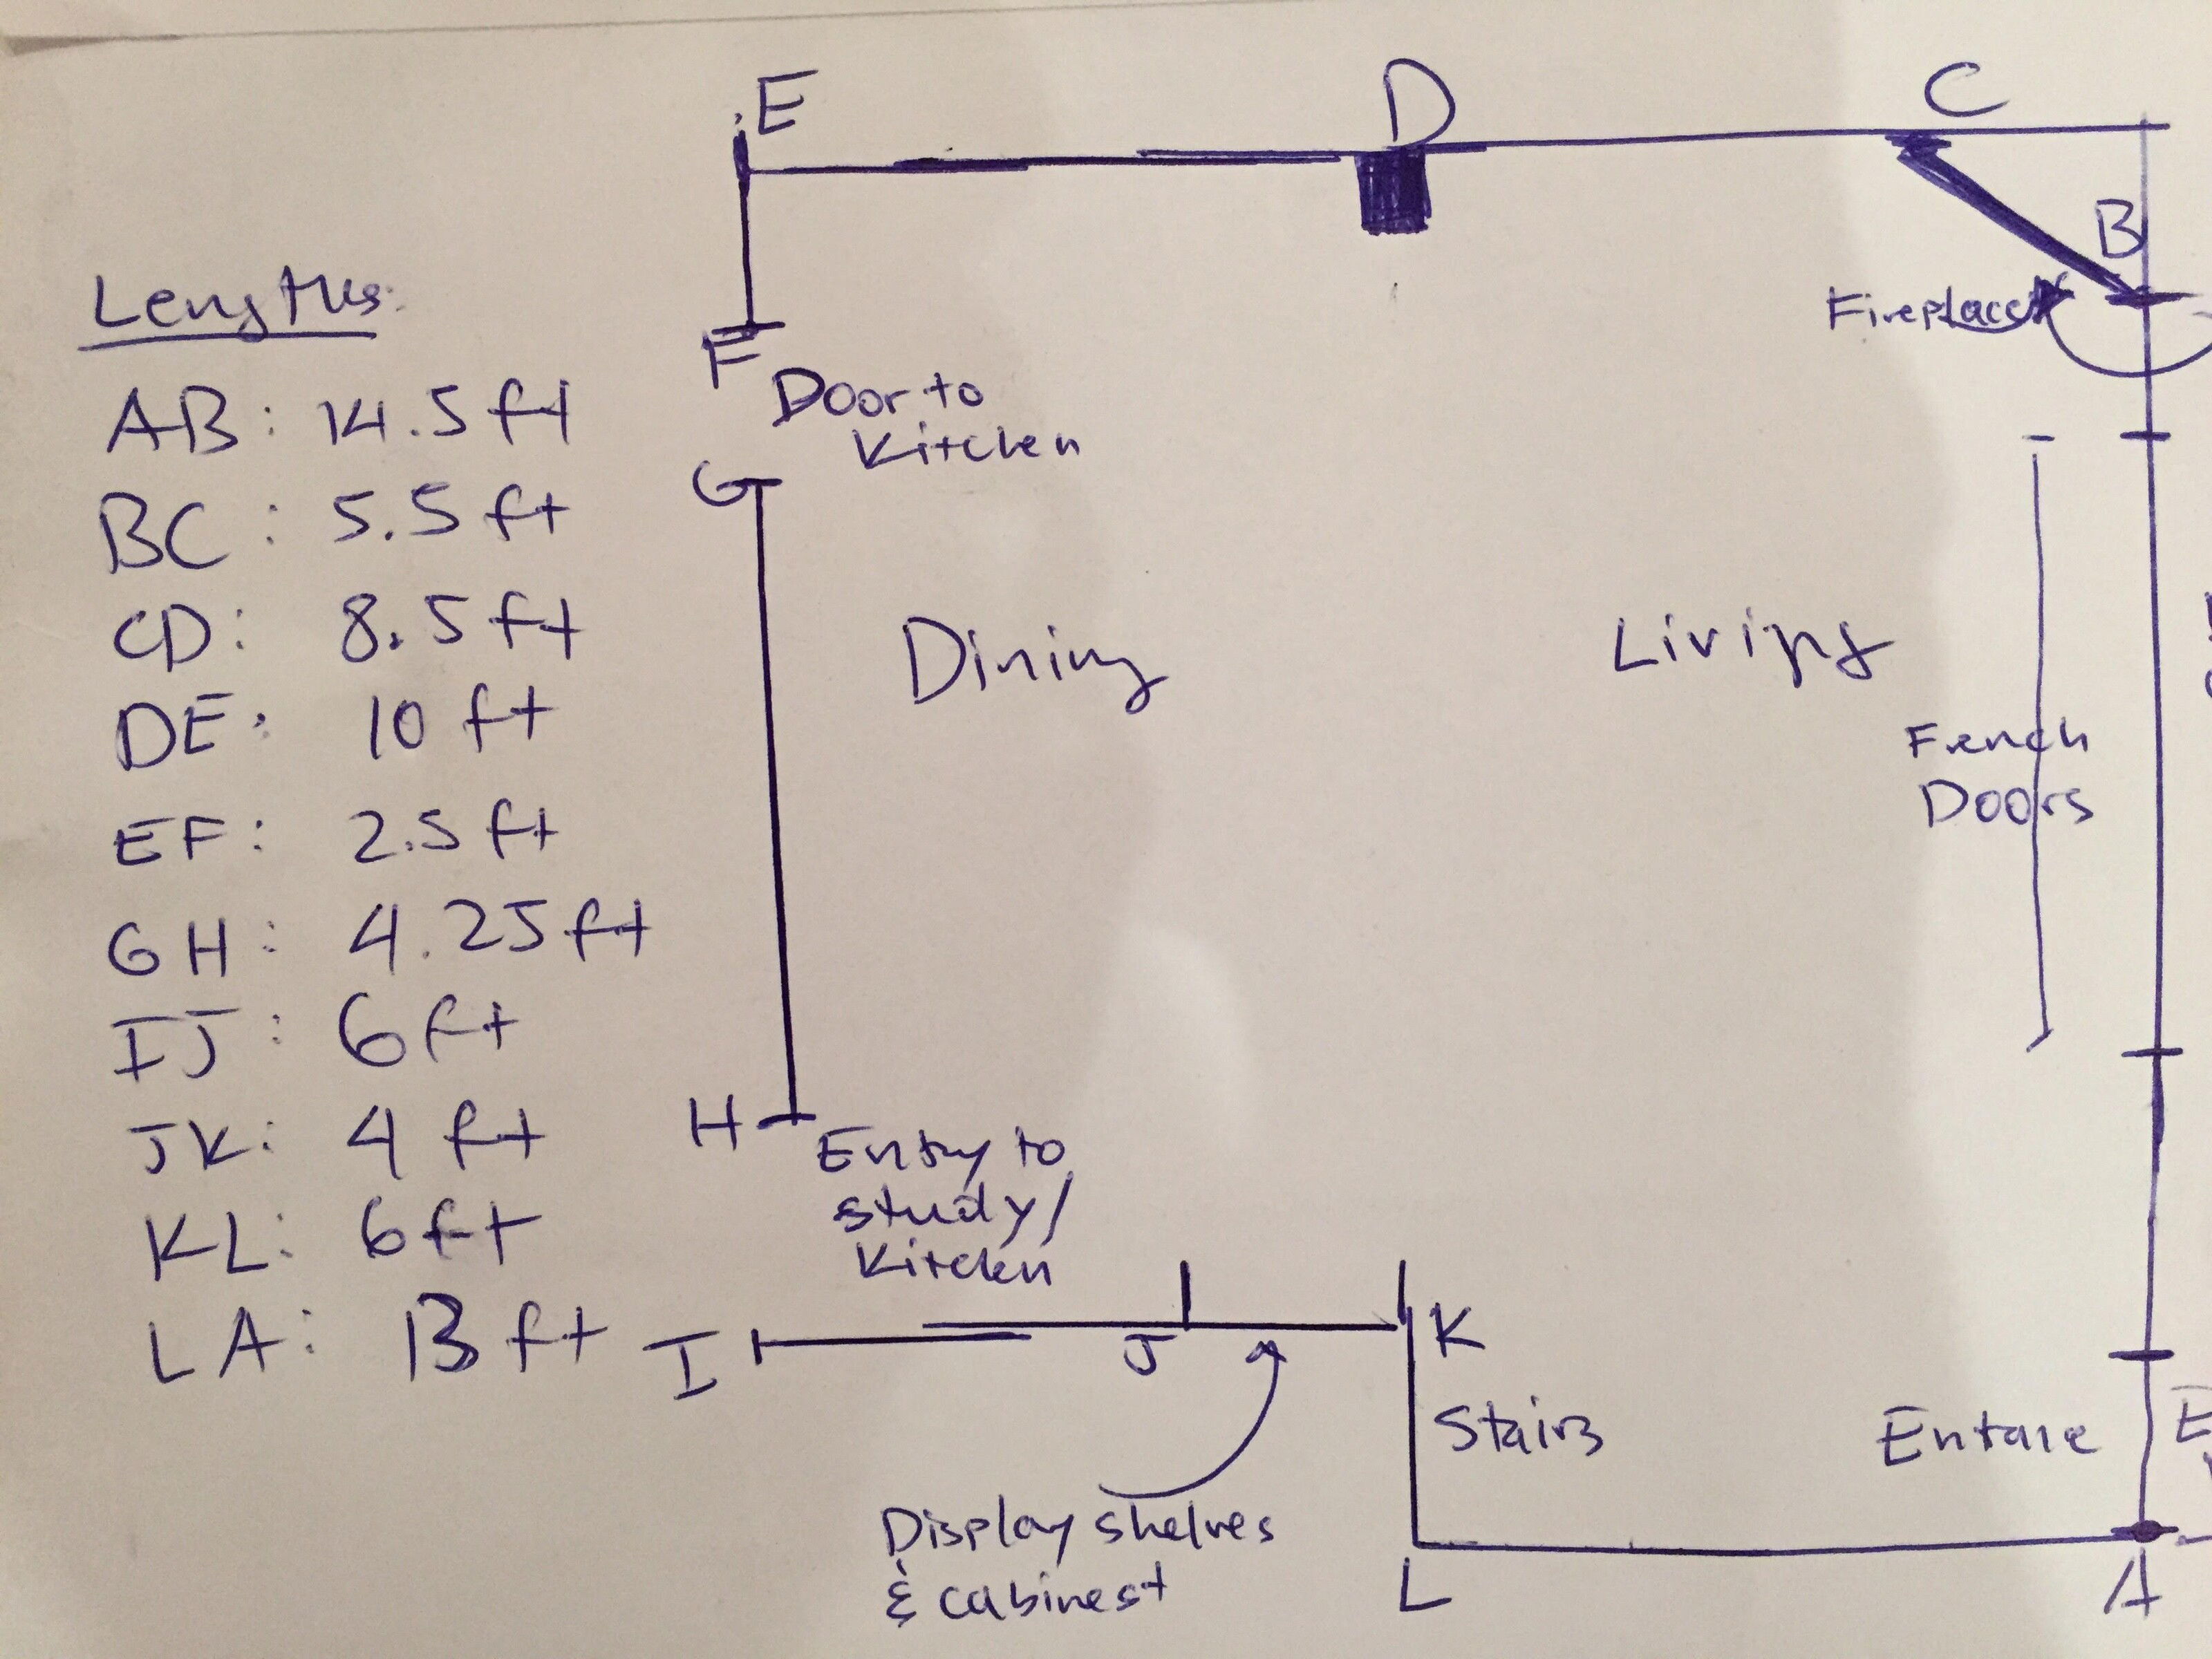 E
D
C
B
Fireplace
Lengths:
AB: 14.5 ft
BC: 5.5 ft
CD: 8.5 ft
DE: 10 ft
EF: 2.5 ft
GH: 4.25 ft
IJ: 6 ft
JK: 4 ft
KL: 6 ft
LA: 13 ft
F
Door to
Kitchen
G
Dining
Living
French
Doors
H
Entry to
study/
Kitchen
I
J
K
Stairs
Display shelves
& cabinest
L
A